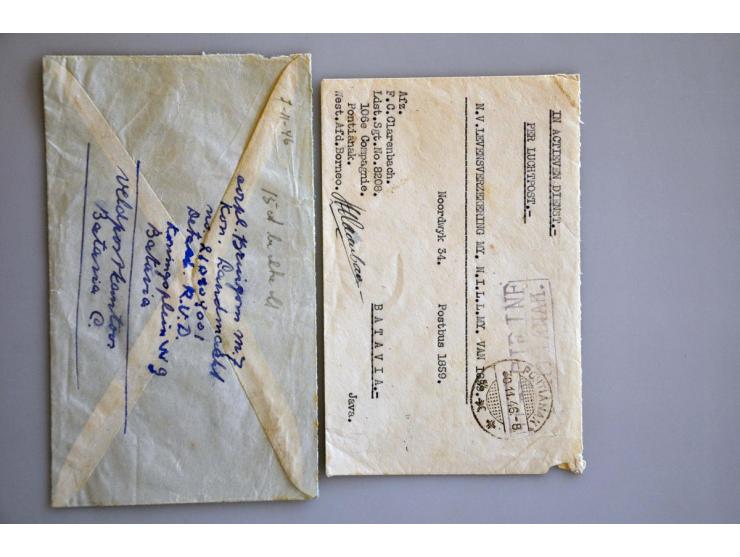 7-11-46
corpl. Bruigom M.J
no. 210204001
Kon. Landmacht
Detach. R.V.D.
Koningsplein W 9
Batavia
Veldpostkantoor
Batavia C.
IN ACTIEVEN DIENST.-
PER LUCHTPOST.-
N.V.LEVENSVERZEKERING MY. N.I.L.L.MY. VAN 1859.-
Noordwyk 34. Postbus 1859.
BATAVIA.-
Java.
Afz.
F.C.Clarenbach.
Ldst.Sgt.No.8208.
106e Compagnie.
Pontianak.
West.Afd.Borneo.
PONTIANAK
30.11.46.-8